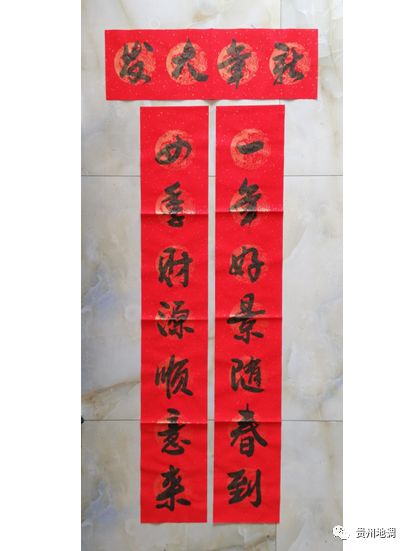 新年大发
一年好景随春到
四季财源顺意来
贵州地调